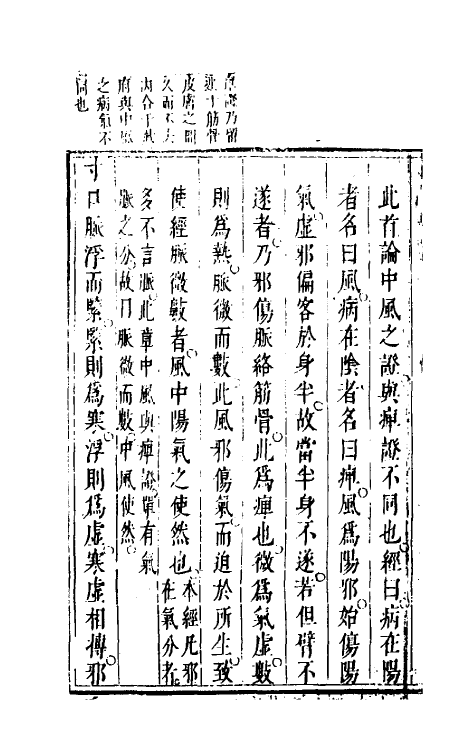 痺證乃留
於筋骨
皮膚之間
久而不去
內合于
府與中風
之病氣不
同也
此首論中風之證與痺證不同也經曰病在陽
者名曰風病在陰者名曰痺風爲陽邪始傷陽
氣虛邪偏客於身半故當半身不遂若但臂不
遂者乃邪傷脈絡筋骨此爲痺也微爲氣虛數
則爲熱脈微而數此風邪傷氣而追於所生致
使經脈微數者風中陽氣之使然也本經凡邪
在氣分者
多不言脈此章中風與痺證單有氣
脈之分故曰脈微而數中風使然
寸口脈浮而緊緊則爲寒浮則爲虛寒虛相摶邪